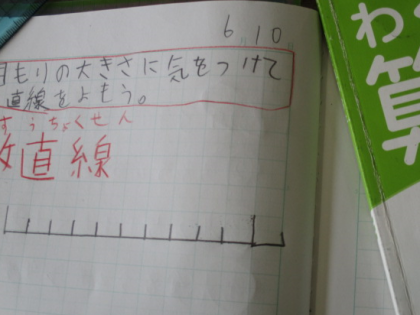 6 10
目もりの大きさに気をつけて
直線をよもう。
すうちょくせん
数直線
わ
算